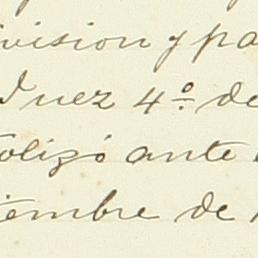 ivision y pa
Juez 4º de
olizó ante
iembre de